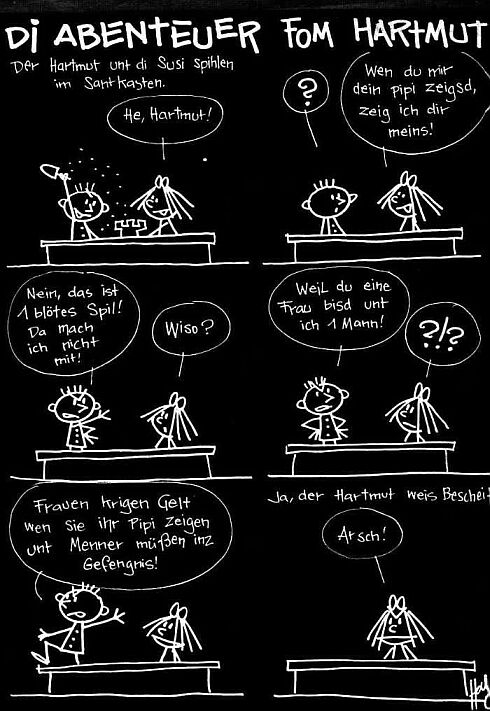 DI ABENTEUER FOM HARTMUT
Der Hartmut unt di Susi spihlen
im Santkasten.
He, Hartmut!
?
Wen du mir
dein pipi zeigsd,
zeig ich dir
meins!
Nein, das ist
1 blötes Spil!
Da mach
ich nicht
mit!
Wiso?
Weil du eine
Frau bisd unt
ich 1 Mann!
?!?
Frauen krigen Gelt
wen Sie ihr Pipi zeigen
unt Menner müßen inz
Gefengnis!
Ja, der Hartmut weis Bescheit
Arsch!